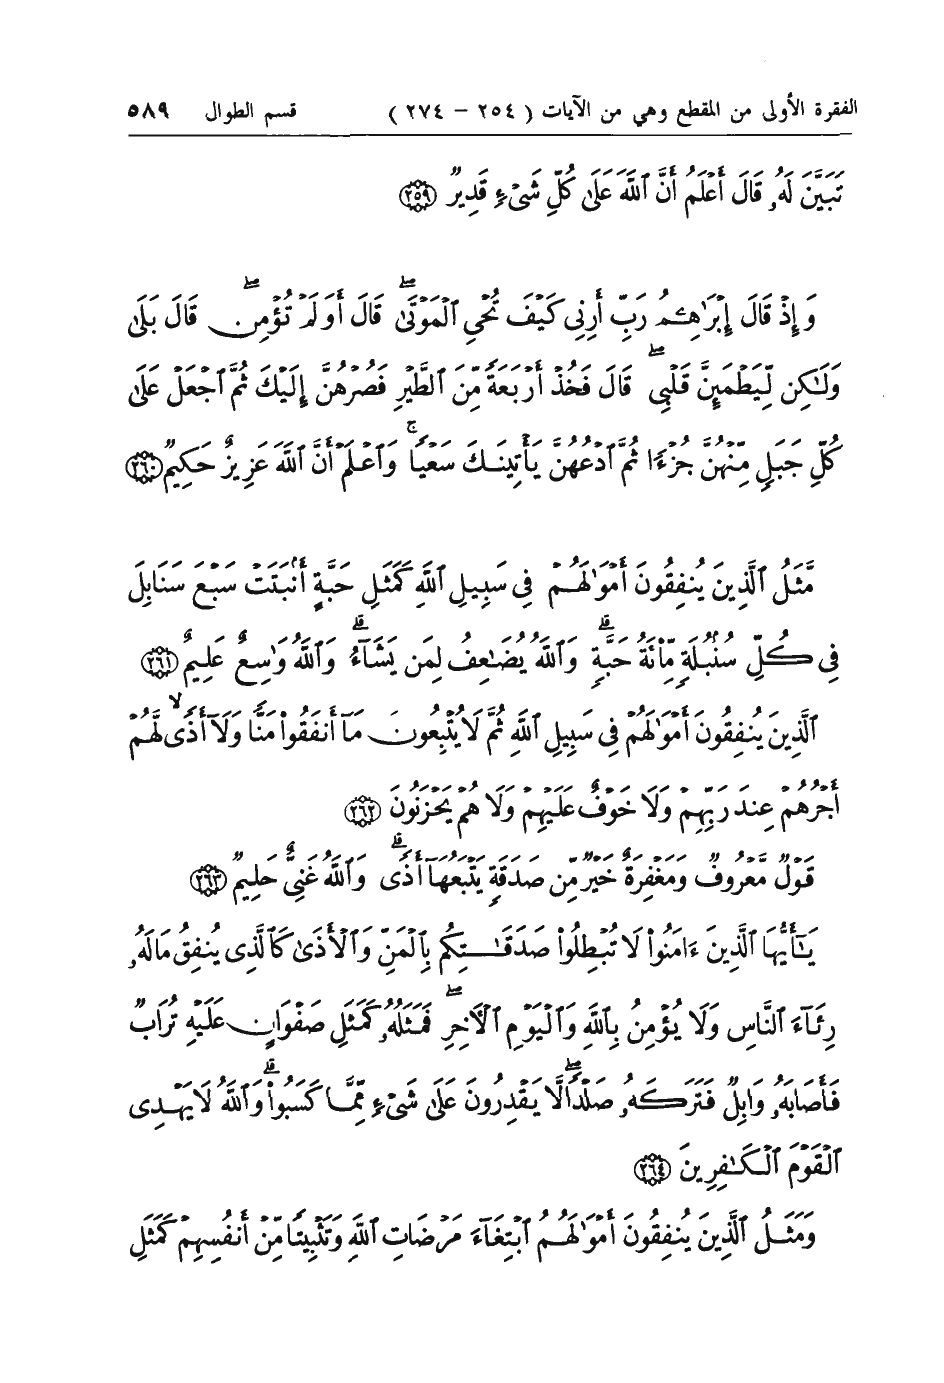 الفقرة الأولى من المقطع وهي من الآيات ( ٢٥٤ – ٢٧٤ ) قسم الطوال ٥٨٩
تَبَيَّنَ لَهُۥ قَالَ أَعْلَمُ أَنَّ ٱللَّهَ عَلَىٰ كُلِّ شَىْءٍ قَدِيرٌ ﴿٢٥٩﴾
وَإِذْ قَالَ إِبْرَٰهِـۧمُ رَبِّ أَرِنِى كَيْفَ تُحْىِ ٱلْمَوْتَىٰ ۖ قَالَ أَوَلَمْ تُؤْمِن ۖ قَالَ بَلَىٰ
وَلَـٰكِن لِّيَطْمَئِنَّ قَلْبِى ۖ قَالَ فَخُذْ أَرْبَعَةً مِّنَ ٱلطَّيْرِ فَصُرْهُنَّ إِلَيْكَ ثُمَّ ٱجْعَلْ عَلَىٰ
كُلِّ جَبَلٍ مِّنْهُنَّ جُزْءًا ثُمَّ ٱدْعُهُنَّ يَأْتِينَكَ سَعْيًا ۚ وَٱعْلَمْ أَنَّ ٱللَّهَ عَزِيزٌ حَكِيمٌ ﴿٢٦٠﴾
مَّثَلُ ٱلَّذِينَ يُنفِقُونَ أَمْوَٰلَهُمْ فِى سَبِيلِ ٱللَّهِ كَمَثَلِ حَبَّةٍ أَنۢبَتَتْ سَبْعَ سَنَابِلَ
فِى كُلِّ سُنۢبُلَةٍ مِّا۟ئَةُ حَبَّةٍ ۗ وَٱللَّهُ يُضَـٰعِفُ لِمَن يَشَآءُ ۗ وَٱللَّهُ وَٰسِعٌ عَلِيمٌ ﴿٢٦١﴾
ٱلَّذِينَ يُنفِقُونَ أَمْوَٰلَهُمْ فِى سَبِيلِ ٱللَّهِ ثُمَّ لَا يُتْبِعُونَ مَآ أَنفَقُوا۟ مَنًّا وَلَآ أَذًى ۙ لَّهُمْ
أَجْرُهُمْ عِندَ رَبِّهِمْ وَلَا خَوْفٌ عَلَيْهِمْ وَلَا هُمْ يَحْزَنُونَ ﴿٢٦٢﴾
قَوْلٌ مَّعْرُوفٌ وَمَغْفِرَةٌ خَيْرٌ مِّن صَدَقَةٍ يَتْبَعُهَآ أَذًى ۗ وَٱللَّهُ غَنِىٌّ حَلِيمٌ ﴿٢٦٣﴾
يَـٰٓأَيُّهَا ٱلَّذِينَ ءَامَنُوا۟ لَا تُبْطِلُوا۟ صَدَقَـٰتِكُم بِٱلْمَنِّ وَٱلْأَذَىٰ كَٱلَّذِى يُنفِقُ مَالَهُۥ
رِئَآءَ ٱلنَّاسِ وَلَا يُؤْمِنُ بِٱللَّهِ وَٱلْيَوْمِ ٱلْـَٔاخِرِ ۖ فَمَثَلُهُۥ كَمَثَلِ صَفْوَانٍ عَلَيْهِ تُرَابٌ
فَأَصَابَهُۥ وَابِلٌ فَتَرَكَهُۥ صَلْدًا ۖ لَّا يَقْدِرُونَ عَلَىٰ شَىْءٍ مِّمَّا كَسَبُوا۟ ۗ وَٱللَّهُ لَا يَهْدِى
ٱلْقَوْمَ ٱلْكَـٰفِرِينَ ﴿٢٦٤﴾
وَمَثَلُ ٱلَّذِينَ يُنفِقُونَ أَمْوَٰلَهُمُ ٱبْتِغَآءَ مَرْضَاتِ ٱللَّهِ وَتَثْبِيتًا مِّنْ أَنفُسِهِمْ كَمَثَلِ